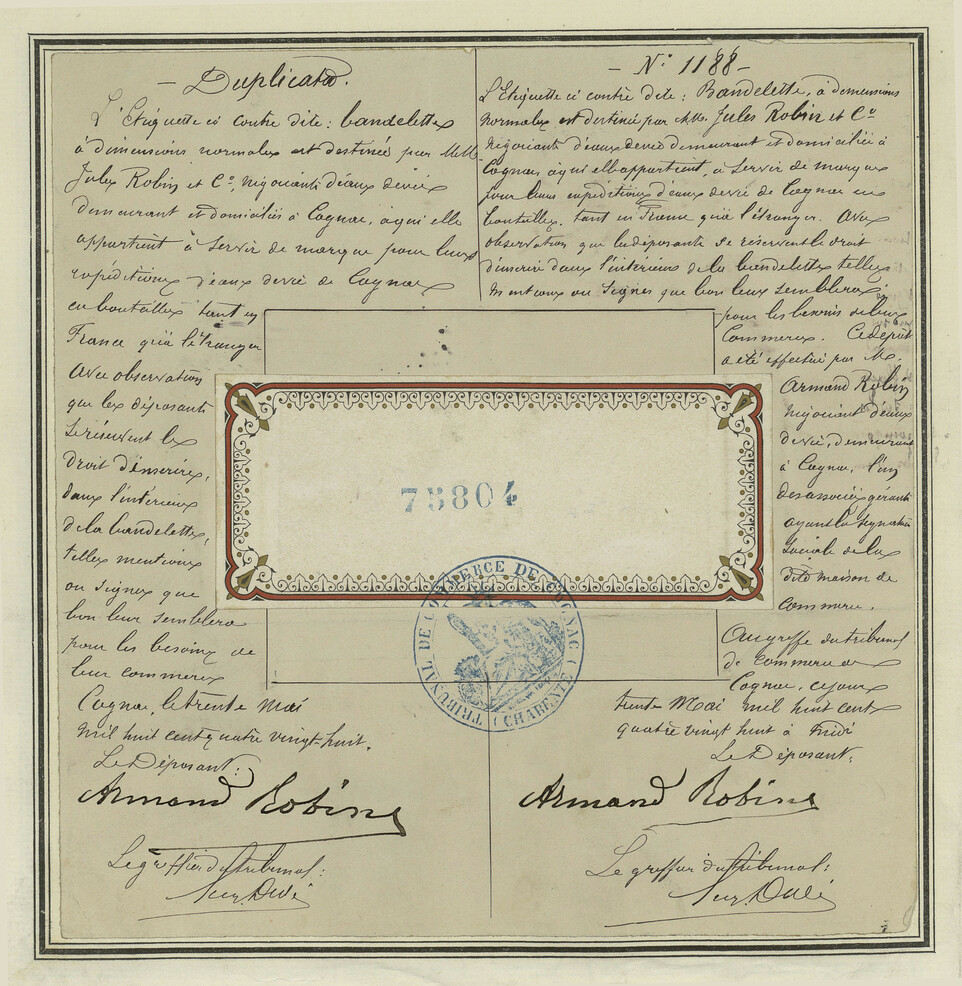 – Duplicata. –
L'Etiquette ci contre dite: bandelette
à dimensions normales est destinée par MM.
Jules Robin et Cº, négociants d'eaux de vie
demeurant et domiciliés à Cognac, à qui elle
appartient à servir de marque pour leurs
expéditions d'eaux de vie de Cognac
en bouteilles tant en
France qu'à l'étranger
Avec observation
que les déposants
se réservent le
droit d'inscrire,
dans l'intérieur
de la bandelette,
telles mentions
ou signes que
bon leur semblera
pour les besoins de
leur commerce
Cognac, le trente Mai
mil huit cent quatre vingt-huit.
Le Déposant:
Armand Robin
Le greffier du tribunal:
– Nº 1188 –
L'Etiquette ci contre dite: Bandelette, à dimensions
normales est destinée par MM. Jules Robin et Cº
négociants d'eaux de vie demeurant et domiciliés à
Cognac, à qui elle appartient, à servir de marque
pour leurs expéditions d'eaux de vie de Cognac en
bouteilles, tant en France qu'à l'étranger. Avec
observation que les déposants se réservent le droit
d'inscrire dans l'intérieur de la bandelette telles
mentions ou signes que bon leur semblera
pour les besoins de leur
commerce. Ce dépôt
a été effectué par M.
Armand Robin
négociant d'eaux
de vie, demeurant
à Cognac, l'un
des associés gérants
ayant la signature
sociale de la
dite maison de
commerce.
Au greffe du tribunal
de commerce de
Cognac, ce jour
trente Mai mil huit cent
quatre vingt huit à midi
Le Déposant:
Armand Robin
Le greffier du tribunal:
75804
TRIBUNAL DE COMMERCE DE COGNAC (CHARENTE)